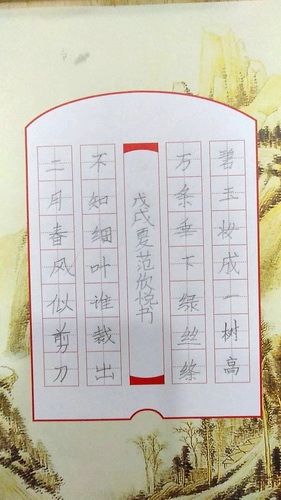 碧玉妆成一树高
万条垂下绿丝绦
戊戌夏范欣悦书
不知细叶谁裁出
二月春风似剪刀